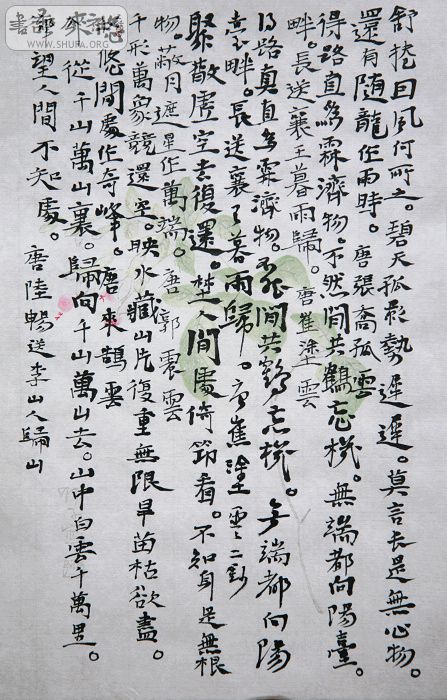 舒捲因風何所之。碧天孤影勢遲遲。莫言長是無心物。
還有隨龍作雨時。唐張喬孤雲
得路直為霖濟物。不然閒共鶴忘機。無端都向陽臺
畔。長送襄王暮雨歸。唐崔塗雲
得路真直為霖濟物。不然閒共鶴忘機。無端都向陽
臺畔。長送襄王暮雨歸。唐崔塗雲二
聚散虛空去復還。埜人閒處倚筇看。不知身是無根
物。蔽月遮星作萬端。唐郭震雲
千形萬象競還空。映水藏山片復重無限旱苗枯欲盡。
悠悠閒處作奇峰。唐來鵠雲
來從千山萬山裏。歸向千山萬山去。山中白雲千萬里。
卻望人間不知處。唐陸暢送李山人歸山
WWW.SHUFA.ORG